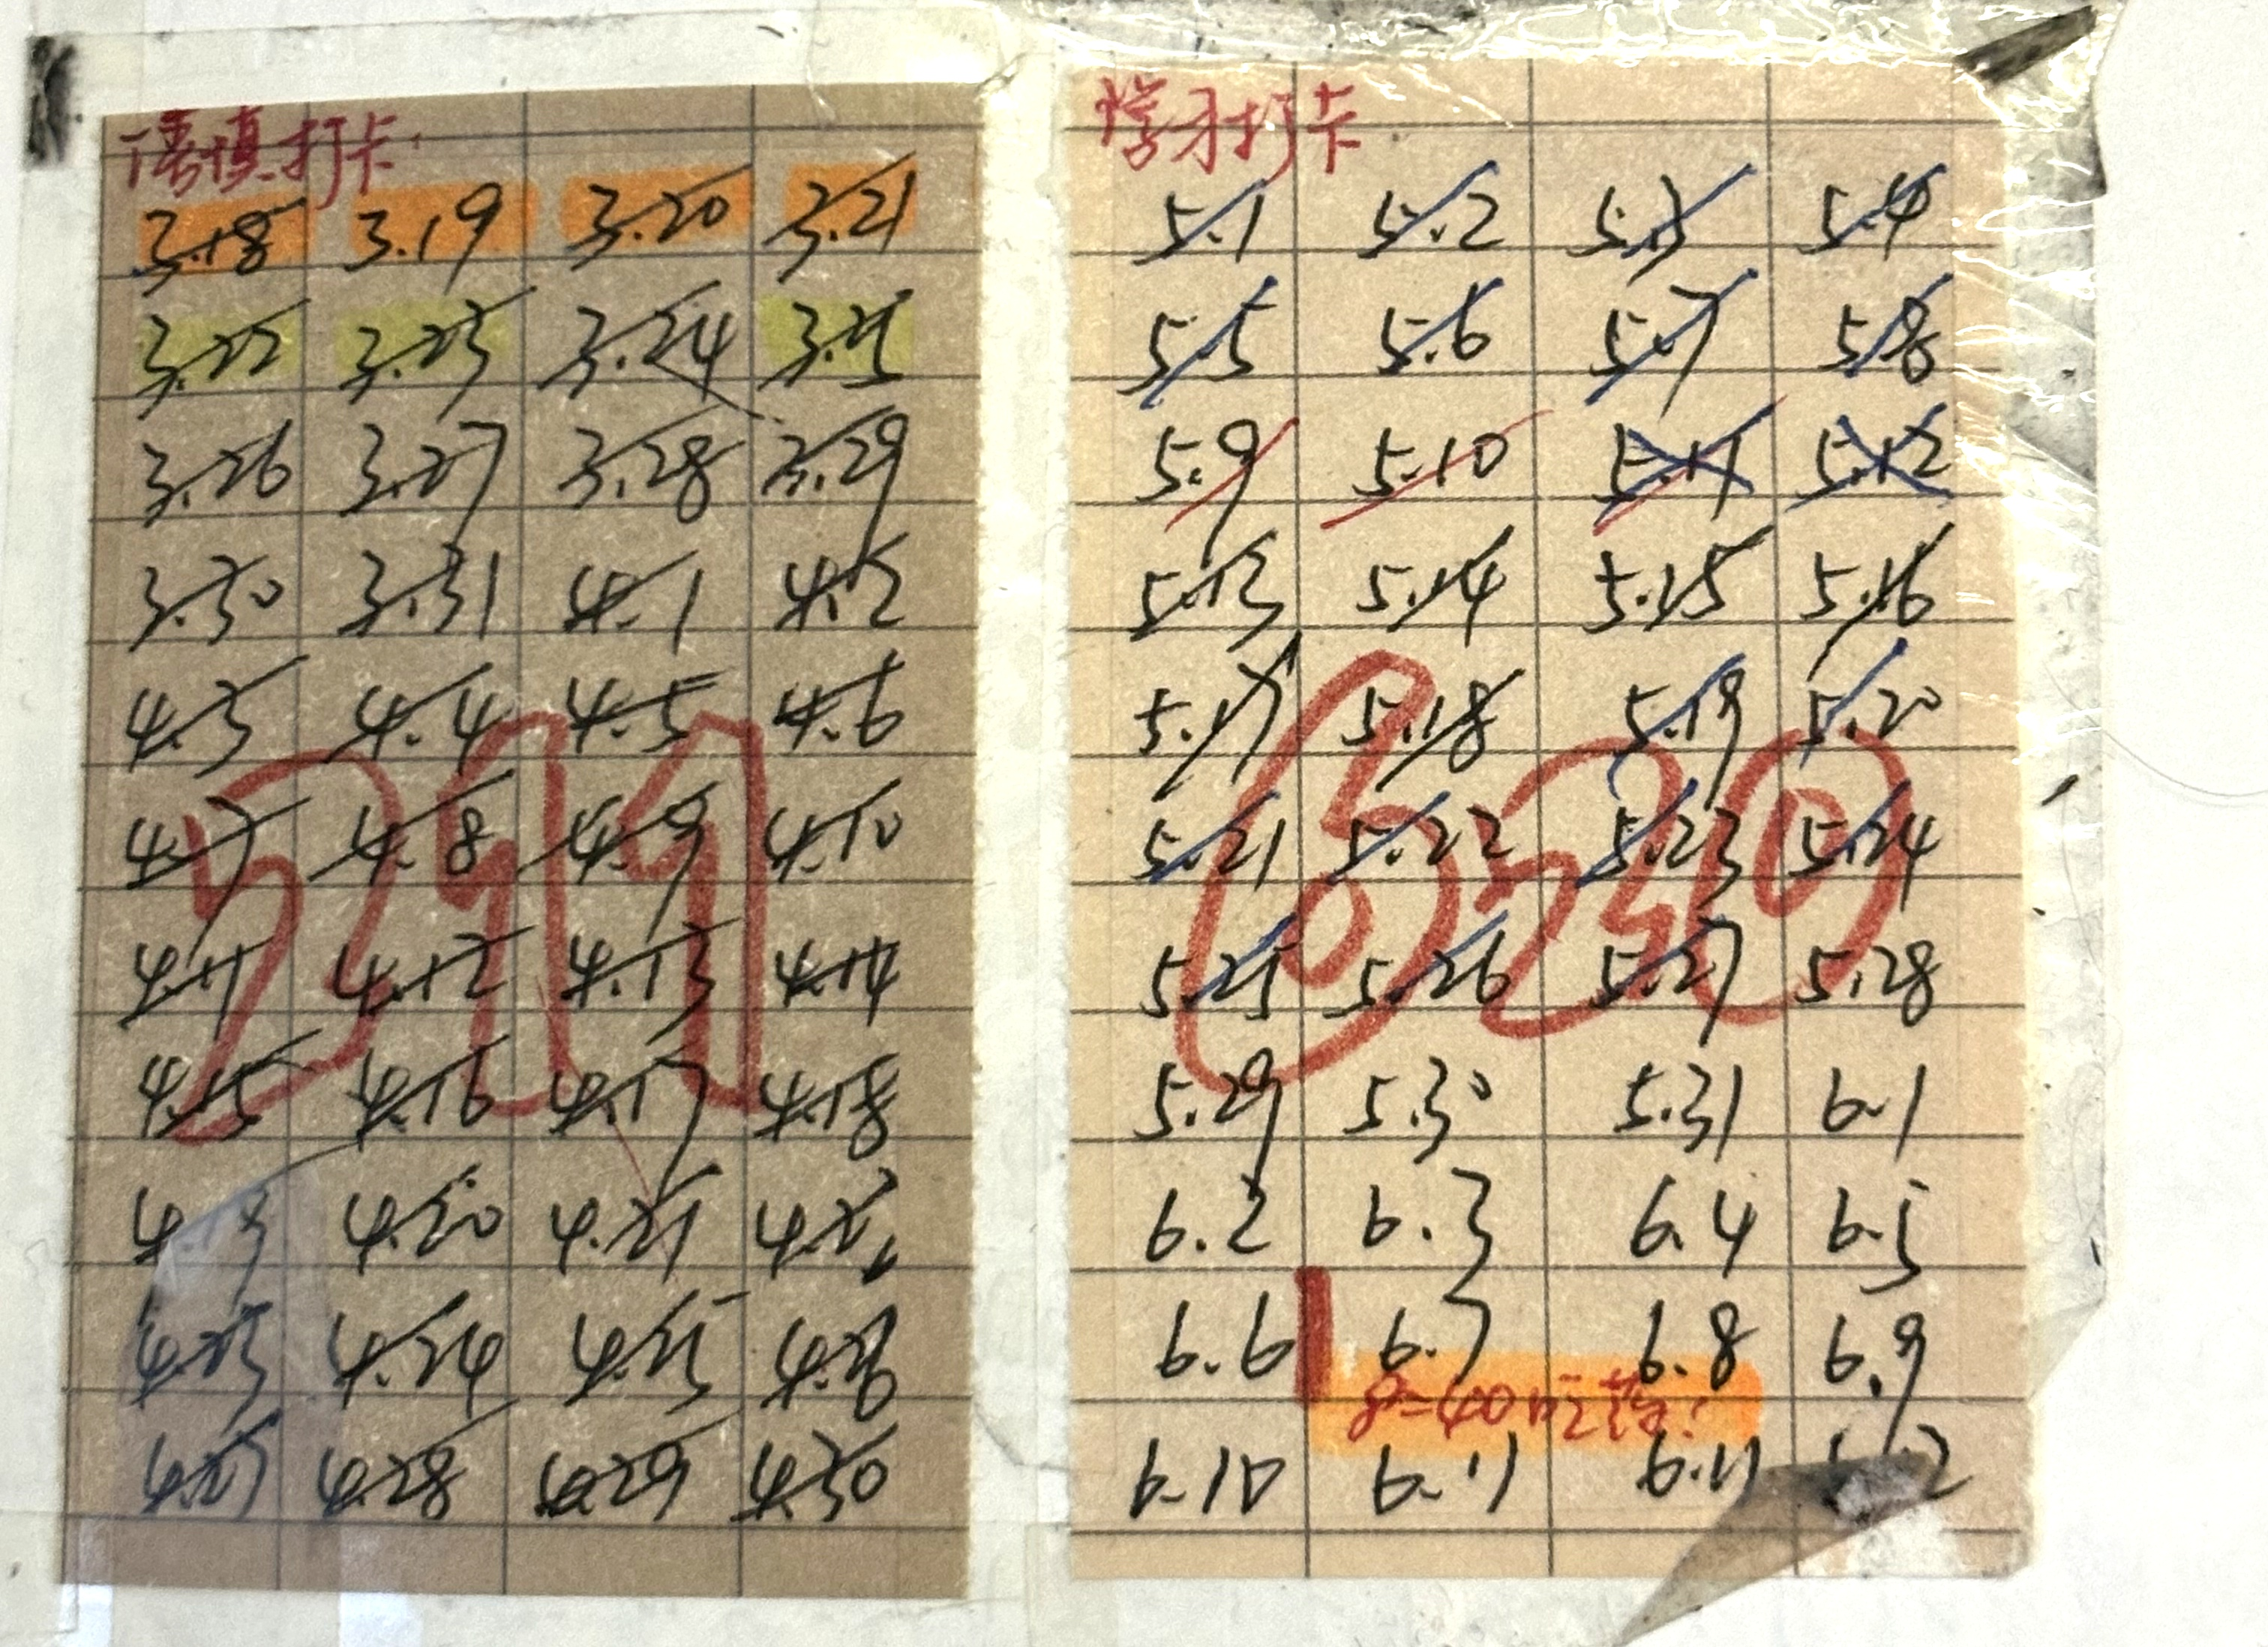 语填打卡
3.18 3.19 3.20 3.21
3.22 3.23 3.24 3.25
3.26 3.27 3.28 3.29
3.30 3.31 4.1 4.2
4.3 4.4 4.5 4.6
4.7 4.8 4.9 4.10
4.11 4.12 4.13 4.14
4.15 4.16 4.17 4.18
4.19 4.20 4.21 4.22
4.23 4.24 4.25 4.26
4.27 4.28 4.29 4.30
学习打卡
5.1 5.2 5.3 5.4
5.5 5.6 5.7 5.8
5.9 5.10 5.11 5.12
5.13 5.14 5.15 5.16
5.17 5.18 5.19 5.20
620
5.21 5.22 5.23 5.24
5.25 5.26 5.27 5.28
5.29 5.30 5.31 6.1
6.2 6.3 6.4 6.5
6.6 6.7 6.8 6.9
8=40
6.10 6.11 6.11